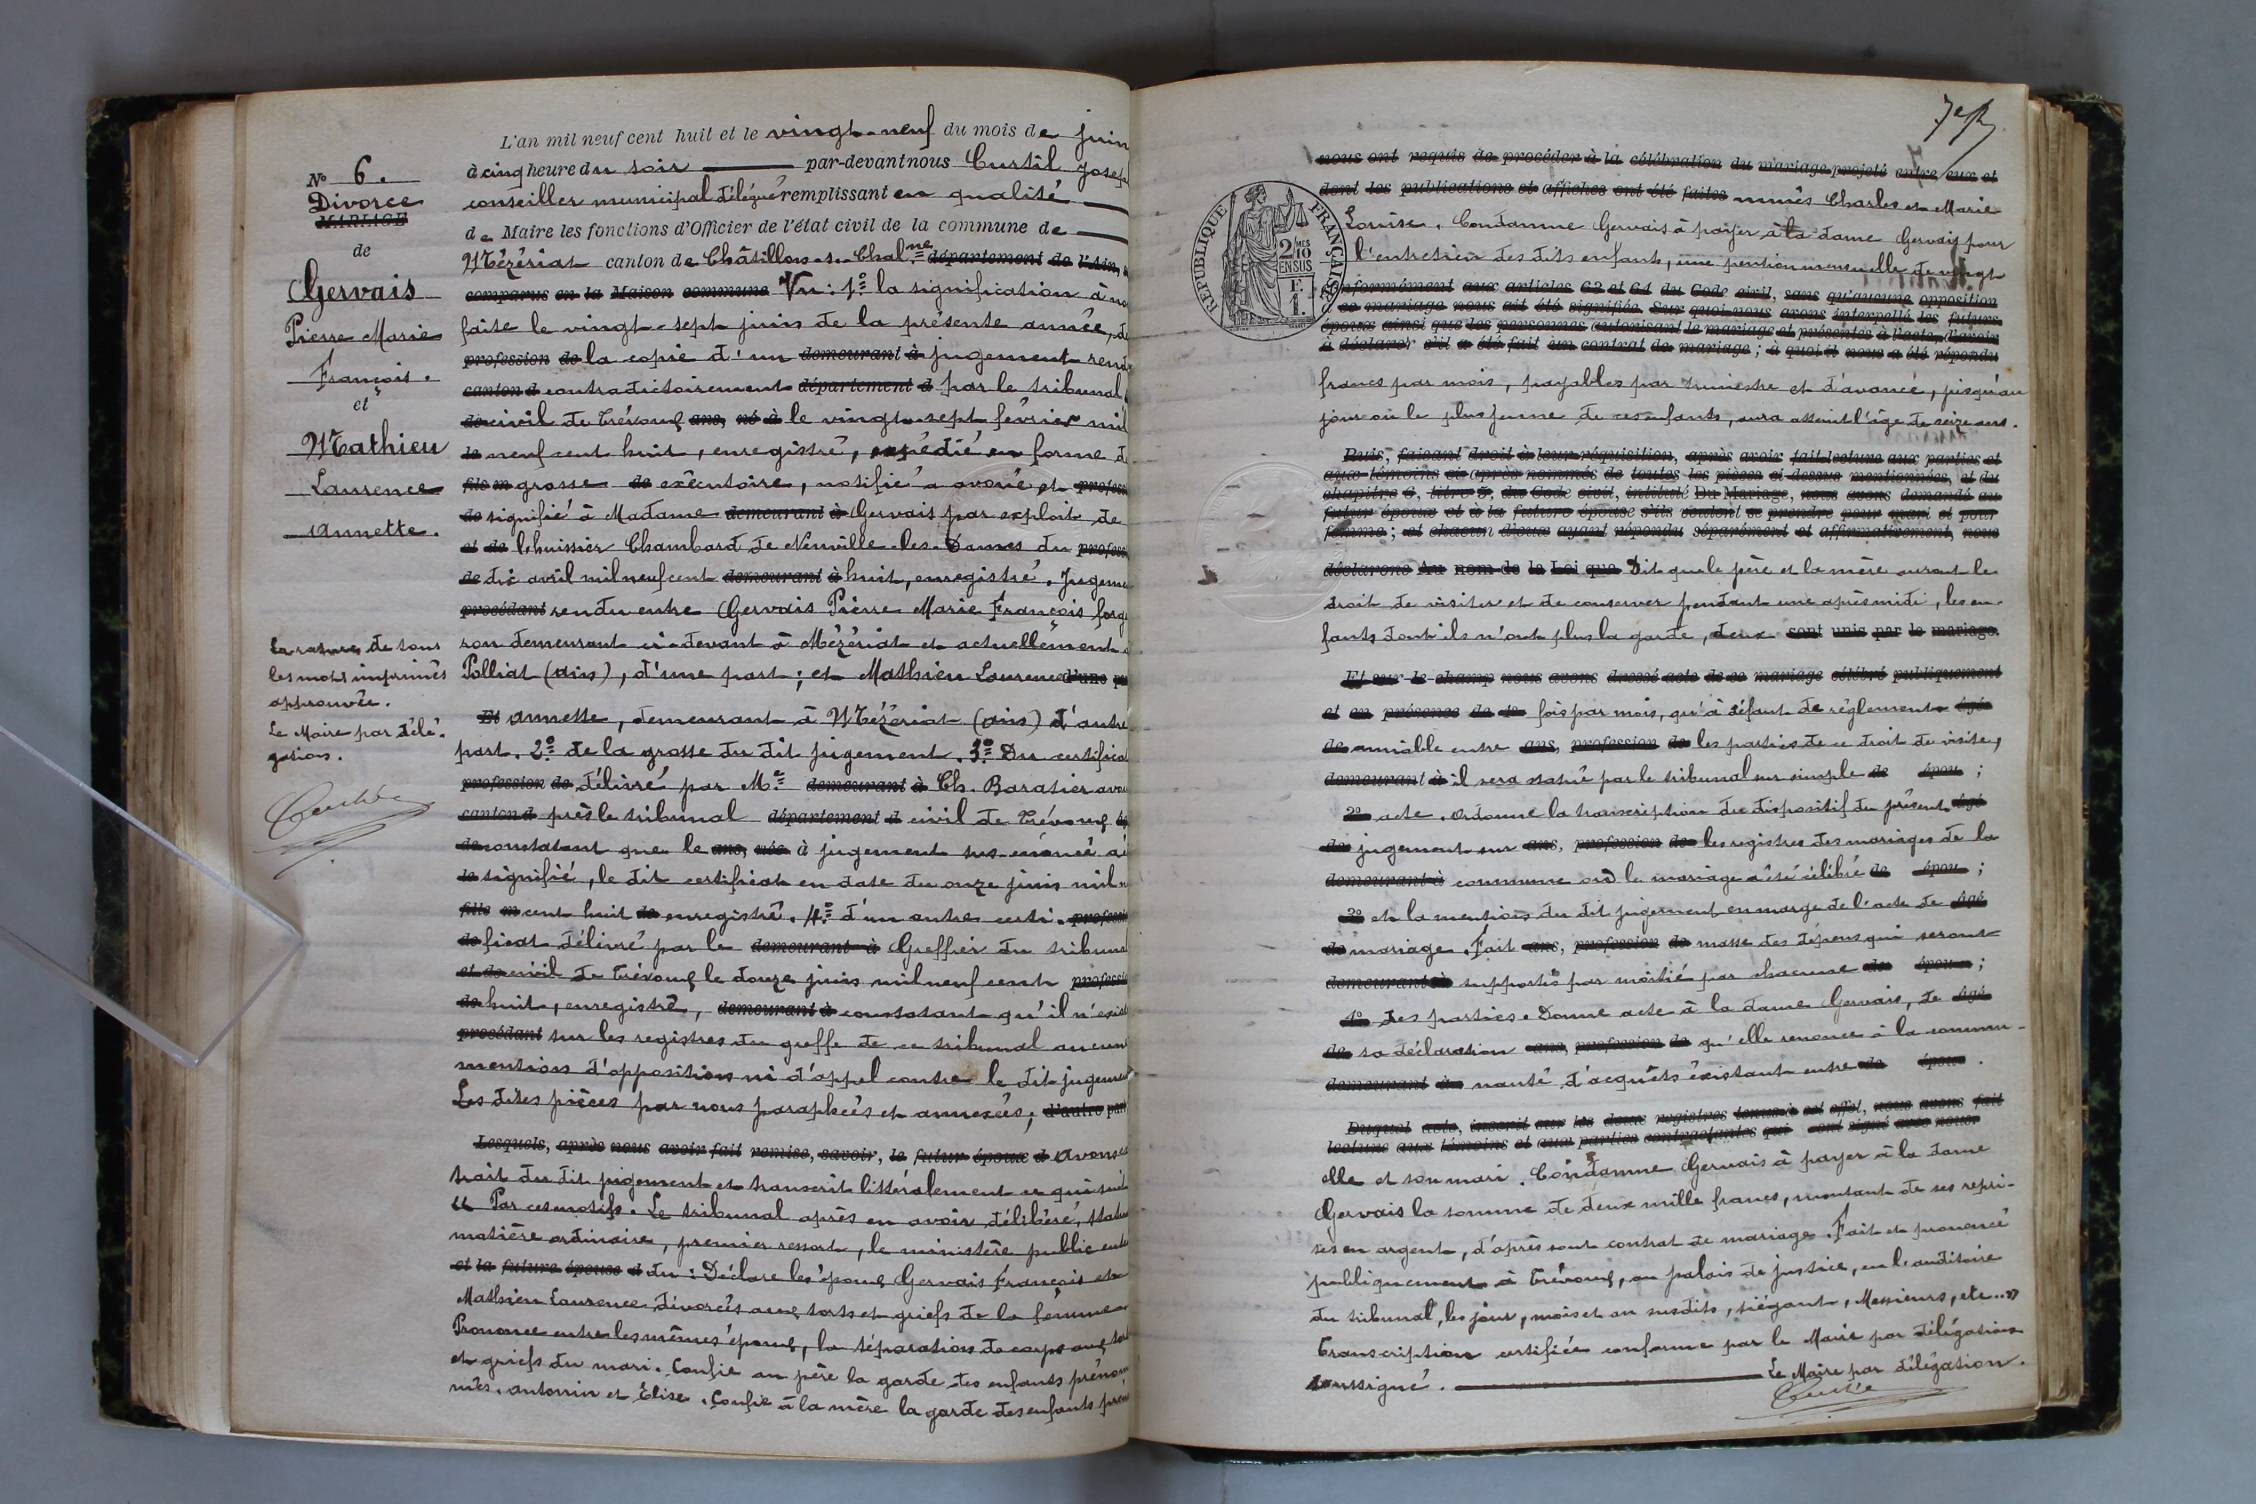 No 6.
Divorce
MARIAGE
de
Gervais
Pierre Marie
François.
et
Mathieu
Laurence
Annette.
La rature de tous
les mots imprimés
approuvée.
Le Maire par délé-
gation.
L'an mil neuf cent huit et le vingt-neuf du mois de juin
à cinq heure du soir par-devant nous Curtil Joseph
conseiller municipal délégué remplissant en qualité
de Maire les fonctions d'Officier de l'état civil de la commune de
Mézériat canton de Châtillon-s-Chalne département de l'Ain,
comparus en la Maison commune Vu : 1° la signification à no
faite le vingt-sept juin de la présente année, de
profession de la copie d'un demeurant à jugement rend
canton d contradictoirement département d par le tribunal
de civil de Trévoux ans, né à le vingt-sept février mil
le neuf cent huit, enregistré, expédié en forme de
fils m grosse de exécutoire, notifié à avoué et profess
de signifié à Madame demeurant à Gervais par exploit de
et de l'huissier Chambard de Neuville-les-Dames du profess
de dix avril mil neuf cent demeurant à huit, enregistré. Jugeme
procédant rendu entre Gervais Pierre Marie François forge
ron demeurant ci-devant à Mézériat et actuellement
Polliat (Ain), d'une part ; et Mathieu Laurence d'une pa
Et Annette, demeurant à Mézériat (Ain) d'autre
part. 2° de la grosse du dit jugement. 3° Du certificat
profession de délivré par Me demeurant à Ch. Baratier avou
canton d près le tribunal département d civil de Trévoux
de constatant que le ans, née à jugement sus-énoncé a
le signifié, le dit certificat en date du onze juin mil
fille m cent huit de enregistré. 4° d'un autre certi- professi
de ficat délivré par le demeurant à Greffier du tribuna
et de civil de Trévoux le douze juin mil neuf cent professi
de huit, enregistré, demeurant à constatant qu'il n'exist
procédant sur les registres du greffe de ce tribunal aucune
mention d'opposition ni d'appel contre le dit jugement
Les dites pièces par nous paraphées et annexées, d'autre part
Lesquels, après nous avoir fait remise, savoir, le futur époux d Avons ex
trait du dit jugement et transcrit littéralement ce qui suit
" Par ces motifs. Le tribunal après en avoir délibéré, statu
matière ordinaire, premier ressort, le ministère public enten
et la future épouse d du : Déclare les époux Gervais François et
Mathieu Laurence divorcés aux torts et griefs de la femme
Prononce entre les mêmes époux, la séparation de corps aux tort
et griefs du mari. Confie au père la garde des enfants prénom
més, Antonin et Elise. Confie à la mère la garde des enfants prén
RÉPUBLIQUE FRANÇAISE
2 MES 10 EN SUS
F. 1.
nous ont requis de procéder à la célébration du mariage projeté entre eux et
dont les publications et affiches ont été faites nmés Charles et Marie
Louise. Condamne Gervais à payer à la dame Gervais pour
l'entretien des dits enfants, une pention mensuelle de vingt
onformément aux articles 63 et 64 du Code civil, sans qu'aucune opposition
ce mariage nous ait été signifiée. Sur quoi nous avons interpellé les futurs
époux ainsi que les personnes autorisant le mariage et présentes à l'acte, d'avoir
à déclarer s'il a été fait un contrat de mariage ; à quoi il nous a été répondu
francs par mois, payables par trimestre et d'avance, jusqu'au
jour où le plus jeune de ces enfants, aura atteint l'âge de seize ans.
Puis, faisant droit à leur réquisition, après avoir fait lecture aux parties et
aux témoins ci-après nommés de toutes les pièces ci-dessus mentionnées, et du
chapitre 6, titre 5, du Code civil, intitulé Du Mariage, nous avons demandé au
futur époux et à la future épouse s'ils veulent se prendre pour mari et pour
femme ; et chacun d'eux ayant répondu séparément et affirmativement, nous
déclarons Au nom de la Loi que Dit que le père et la mère auront le
droit de visiter et de conserver pendant une après midi, les en-
fants dont ils n'ont plus la garde, deux sont unis par le mariage.
Et sur-le-champ nous avons dressé acte de ce mariage célébré publiquement
et en présence de 1° fois par mois, qu'à défaut de réglement âgé
de amiable entre ans, profession de les parties de ce droit de visite,
demeurant à il sera statué par le tribunal sur simple de épou ;
2° acte. Ordonne la transcription du dispositif du présent âgé
de jugement sur ans, profession de les registres des mariages de la
demeurant à commune où le mariage a été célébré de épou ;
3° et la mention du dit jugement en marge de l'acte de âgé
de mariage. Fait ans, profession de masse des dépens qui seront
demeurant à supportés par moitié par chacune de épou ;
4° des parties. Donne acte à la dame Gervais, de âgé
de sa déclaration ans, profession de qu'elle renonce à la commu-
demeurant à nauté d'acquêts existant entre de épou .
Duquel acte, inscrit sur les deux registres tenus à cet effet, nous avons fait
lecture aux témoins et aux parties contractantes qui ont signé avec nous
elle et son mari. Condamne Gervais à payer à la dame
Gervais la somme de deux mille francs, montant de ses repri-
ses en argent, d'après sont contrat de mariage. Fait et prononcé
publiquement à Trévoux, au palais de justice, en l'auditoire
du tribunal, les jour, mois et an susdits, siégant, Messieurs, etc..."
Transcription certifiée conforme par le Maire par délégation
soussigné. Le Maire par délégation.